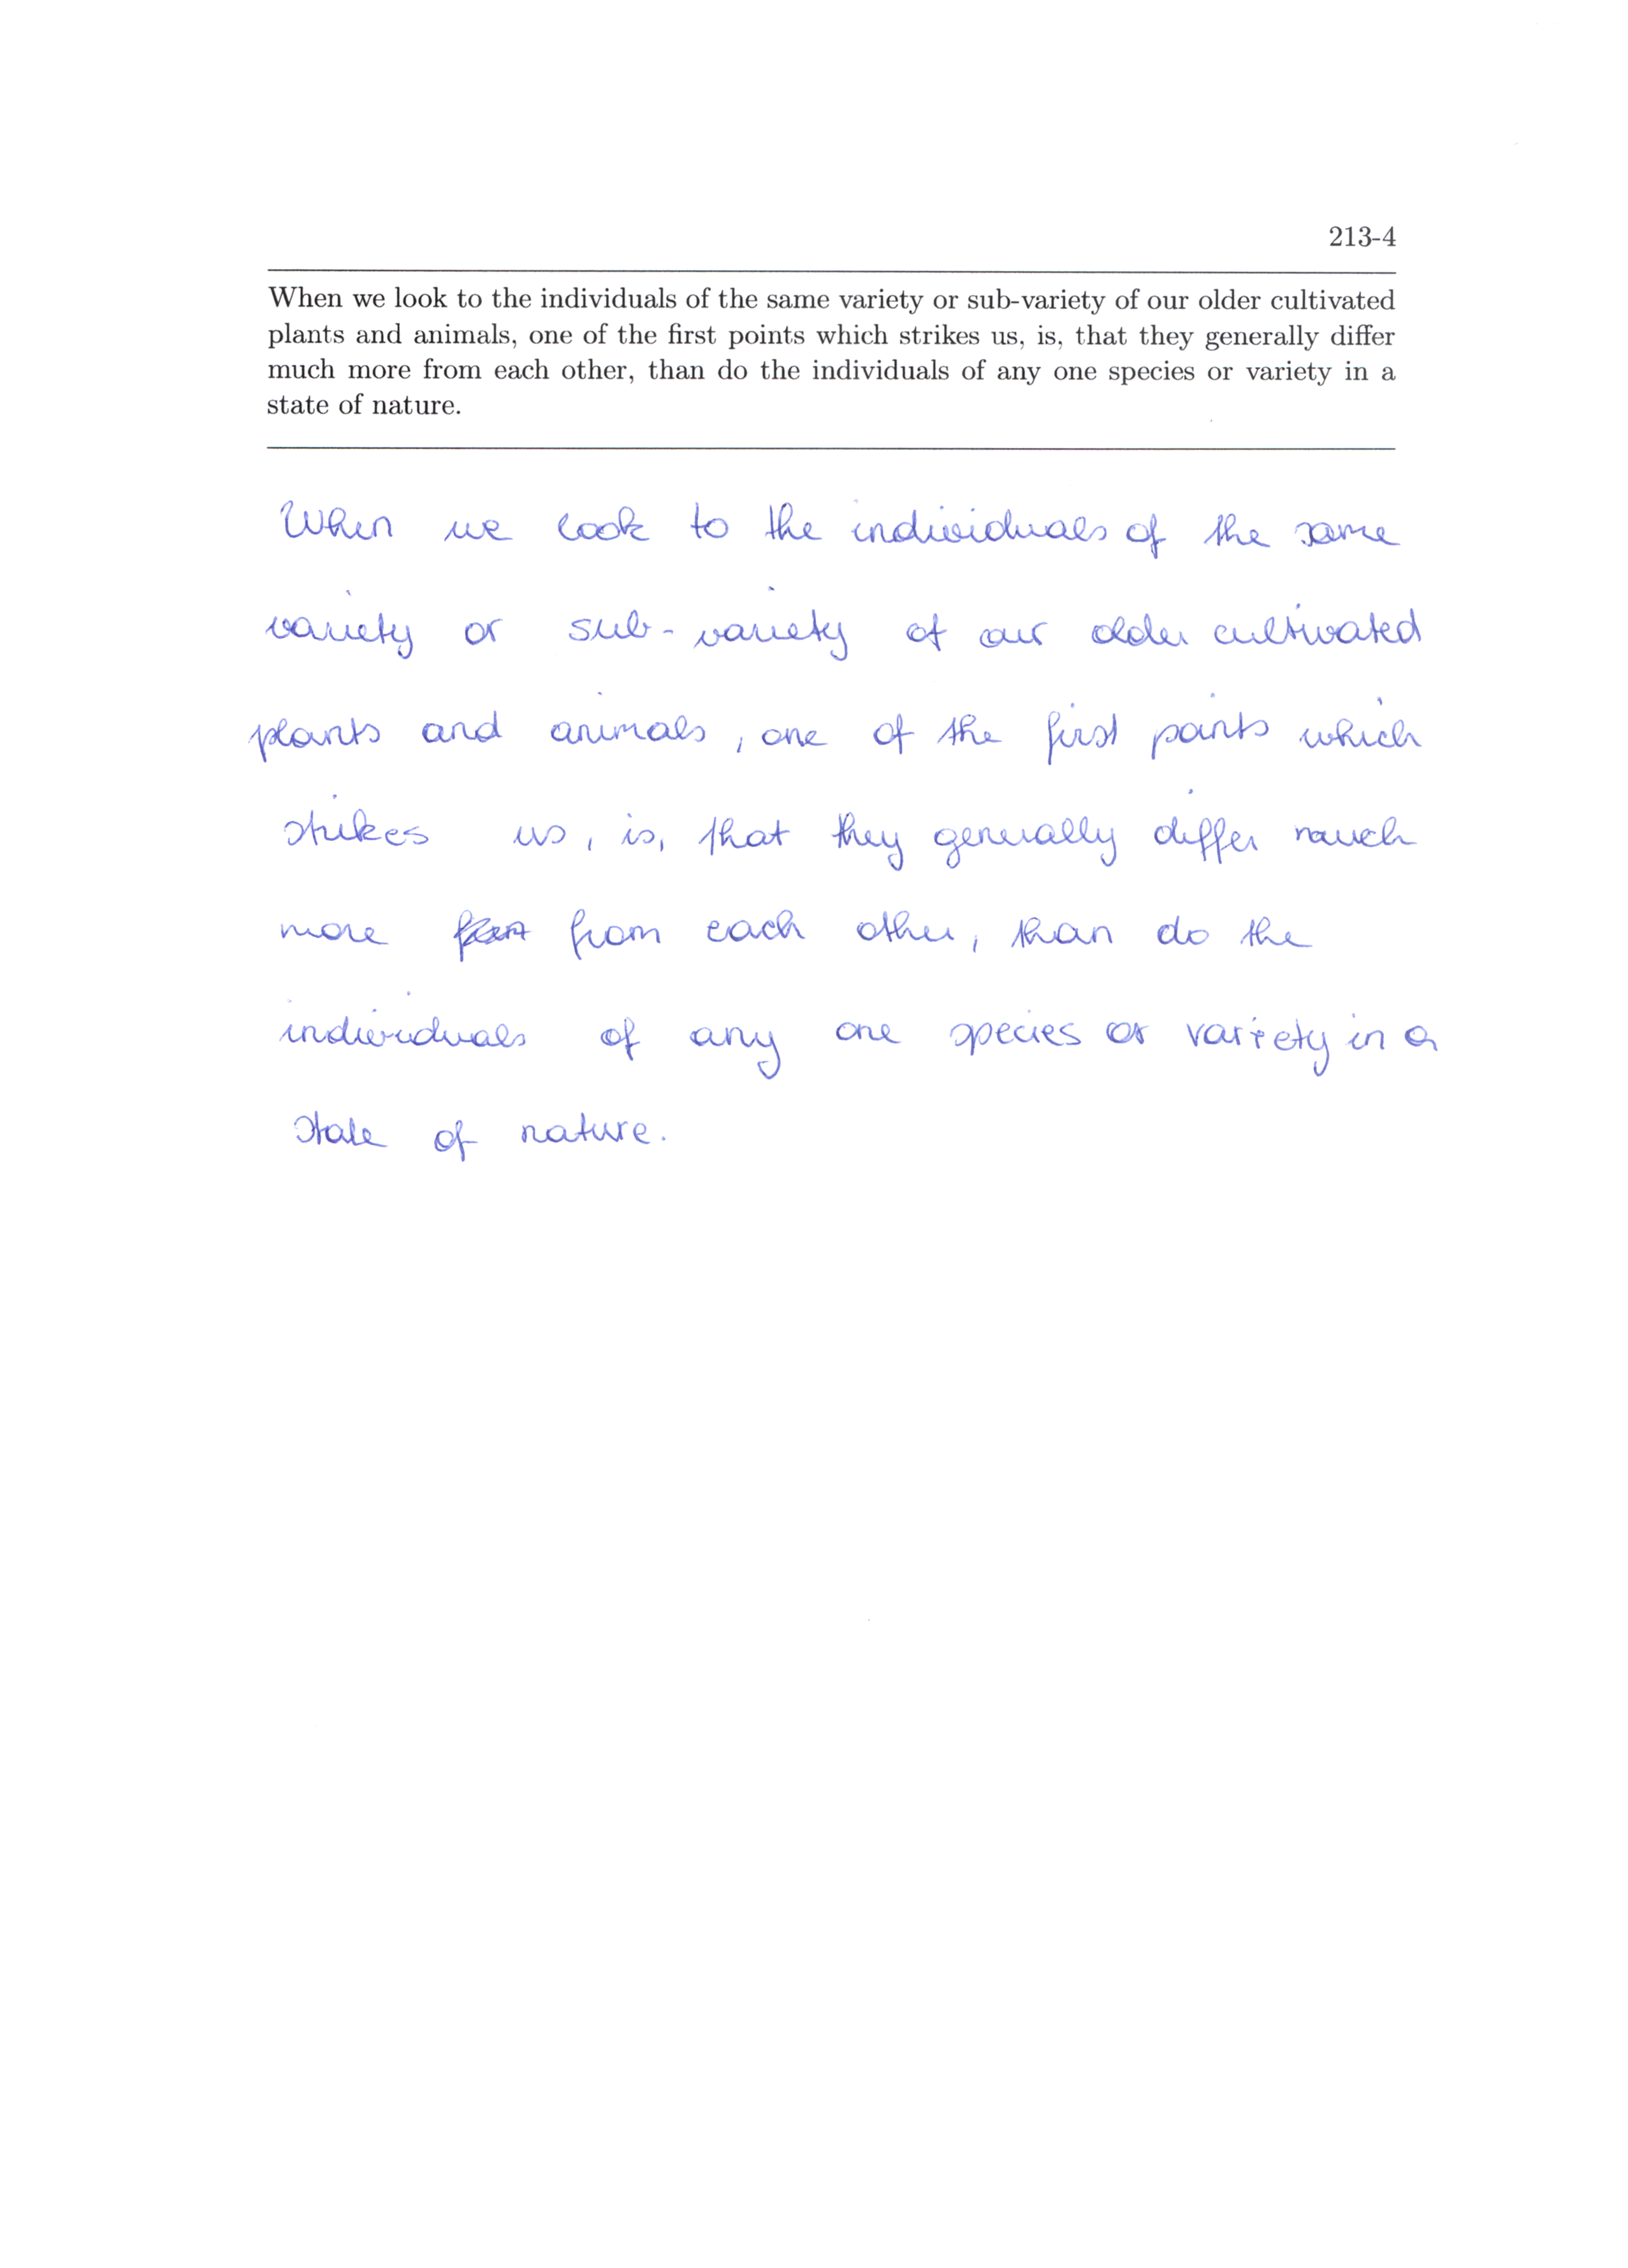 213-4
When we look to the individuals of the same variety or sub-variety of our older cultivated
plants and animals, one of the first points which strikes us, is, that they generally differ
much more from each other, than do the individuals of any one species or variety in a
state of nature.
When we look to the individuals of the same
variety or sub-variety of our older cultivated
plants and animals, one of the first points which
strikes us, is, that they generally differ much
more from each other, than do the
individuals of any one species or variety in a
state of nature.